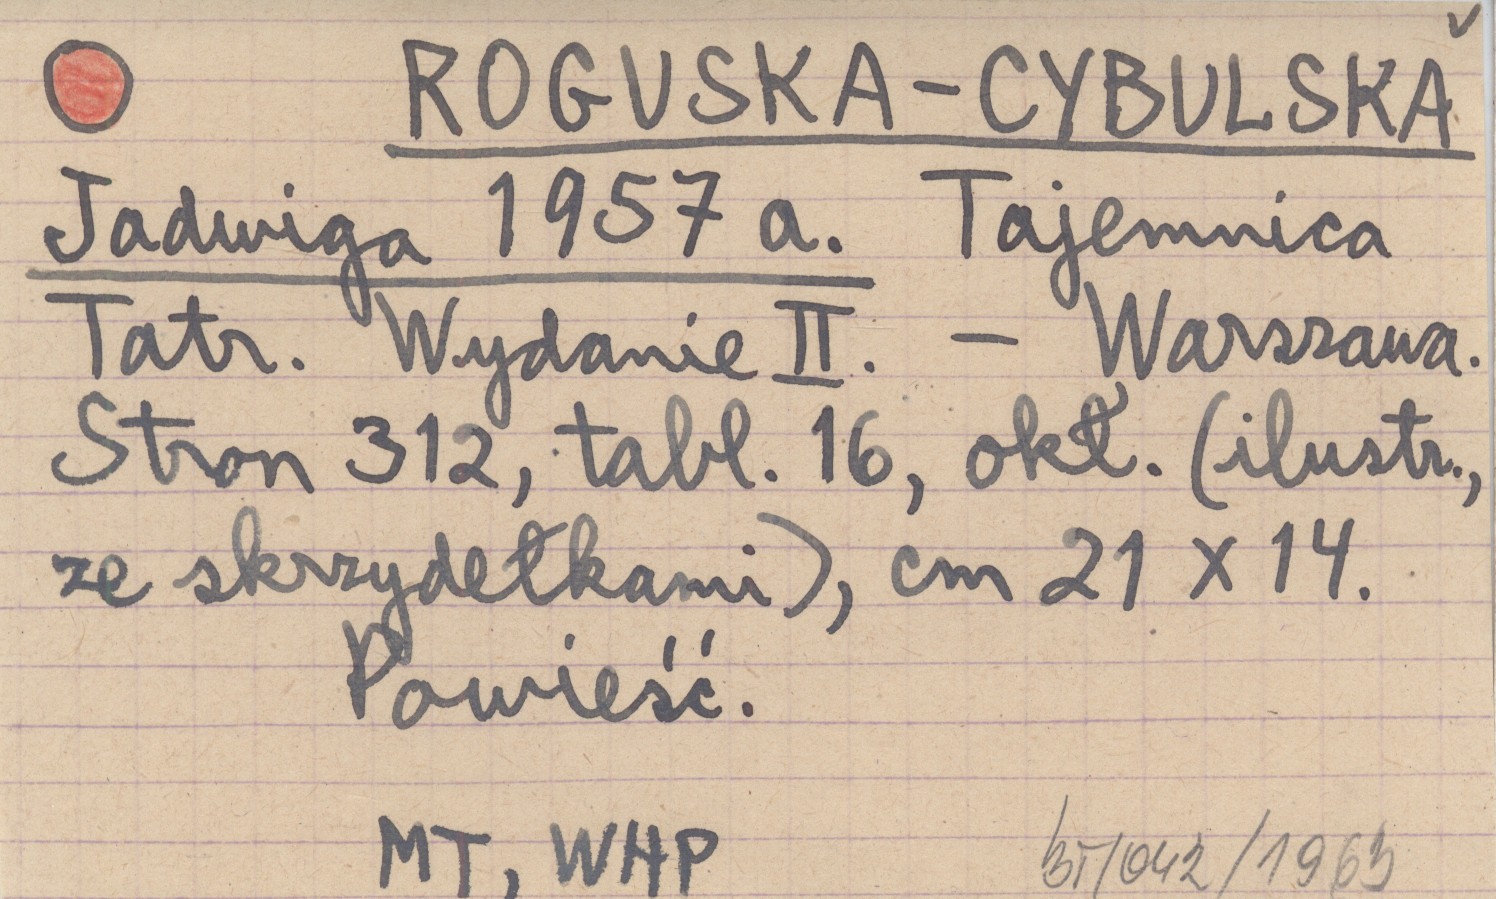 ROGUSKA-CYBULSKA
Jadwiga 1957 a. Tajemnica
Tatr. Wydanie II. – Warszawa.
Stron 312, tabl. 16, okł. (ilustr.,
ze skrzydełkami), cm 21 x 14.
Powieść.
MT, WHP
/1963